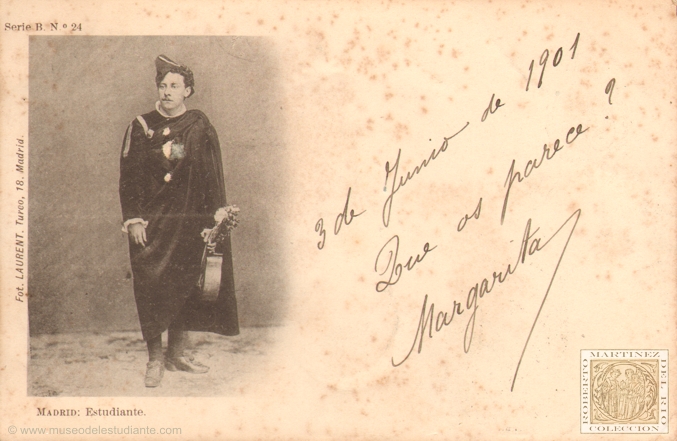 Serie B. Nº 24
Fot. LAURENT, Turco, 18. Madrid.
MADRID: Estudiante.
3 de Junio de 1901
Que os parece?
Margarita
© www.museodelestudiante.com
ROBERTO MARTINEZ DEL RIO COLECCION